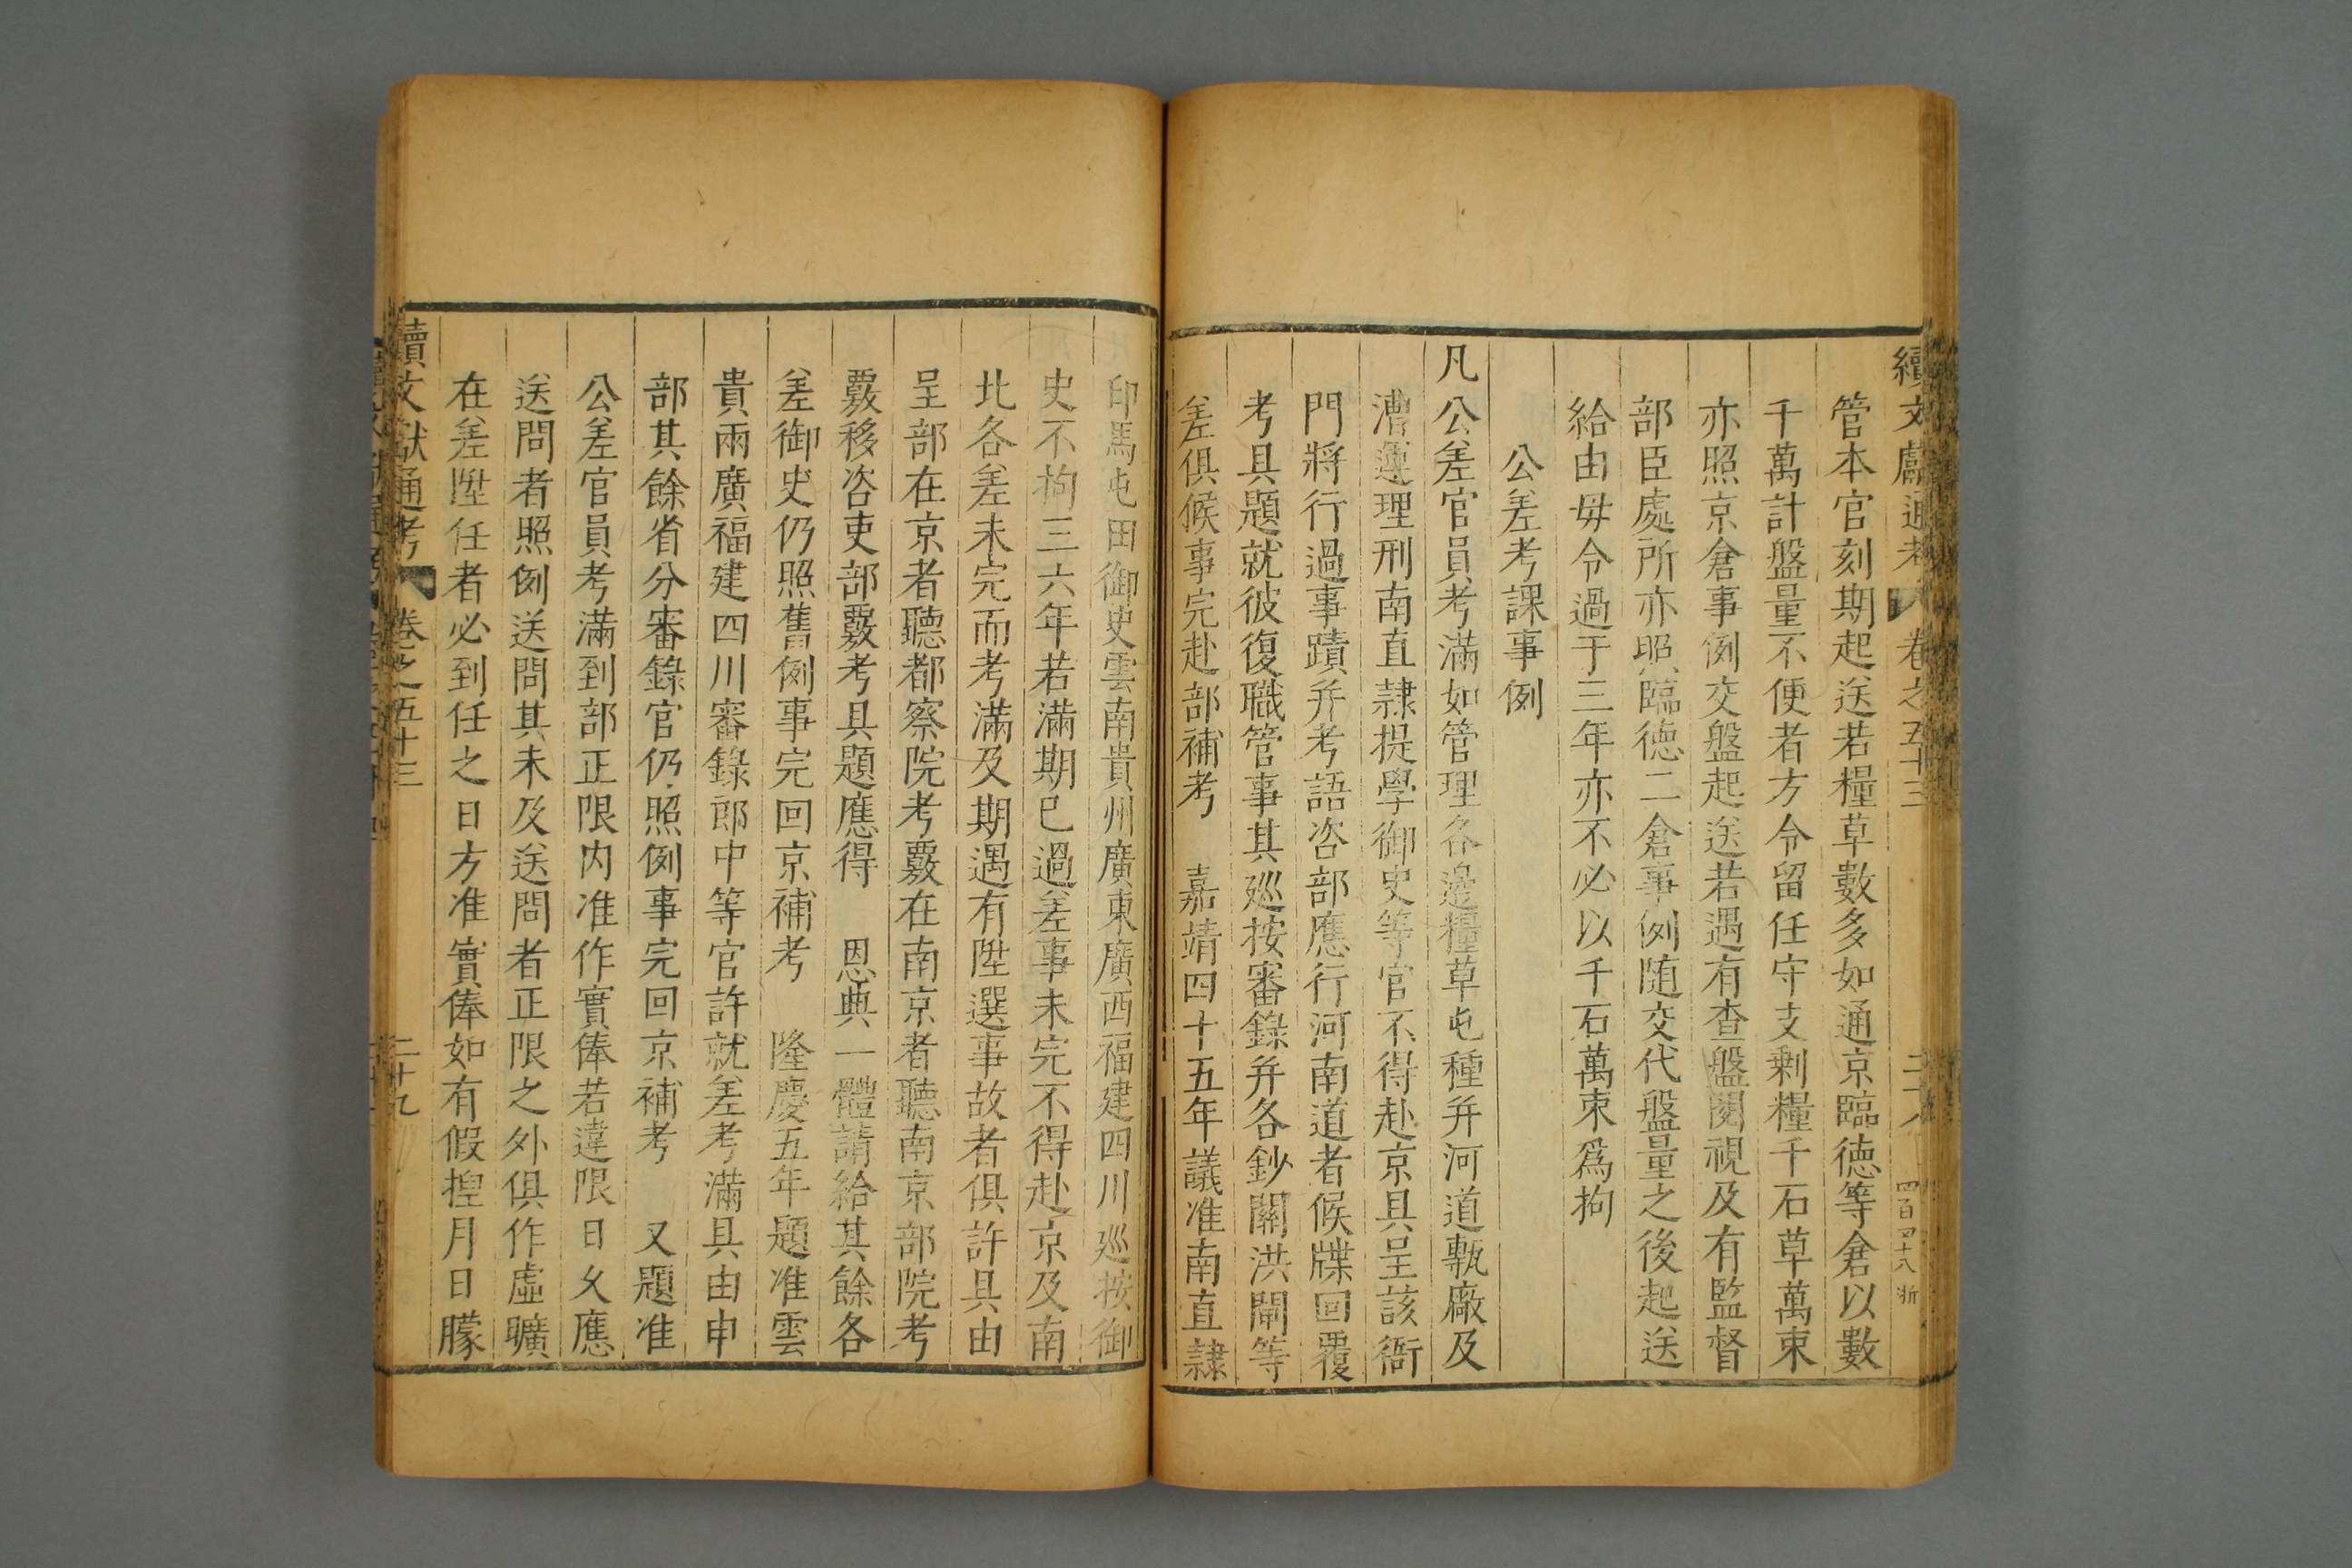 續文獻通考 卷之五十三 二十八 四百四十八 浙
管本官刻期起送若糧草數多如通京臨德等倉以數
千萬計盤量不便者方令留任守支剩糧千石草萬束
亦照京倉事例交盤起送若遇有查盤閱視及有監督
部臣處所亦照臨德二倉事例随交代盤量之後起送
給由毋令過于三年亦不必以千石萬束爲拘
公差考課事例
凡公差官員考滿如管理各邊糧草屯種并河道甎廠及
漕運理刑南直隷提學御史等官不得赴京具呈該衙
門將行過事蹟并考語咨部應行河南道者候牒回覆
考具題就彼復職管事其廵按審錄并各鈔關洪閘等
差俱候事完赴部補考 嘉靖四十五年議准南直隷
印馬屯田御史雲南貴州廣東廣西福建四川廵按御
史不拘三六年若滿期已過差事未完不得赴京及南
北各差未完而考滿及期遇有陞選事故者俱許具由
呈部在京者聽都察院考覈在南京者聽南京部院考
覈移咨吏部覈考具題應得 恩典一體請給其餘各
差御史仍照舊例事完回京補考 隆慶五年題准雲
貴兩廣福建四川審錄郎中等官許就差考滿具由申
部其餘省分審錄官仍照例事完回京補考 又題准
公差官員考滿到部正限内准作實俸若違限日久應
送問者照例送問其未及送問者正限之外俱作虛曠
在差陞任者必到任之日方准實俸如有假揑月日朦
續文獻通考 卷之五十三 二十九